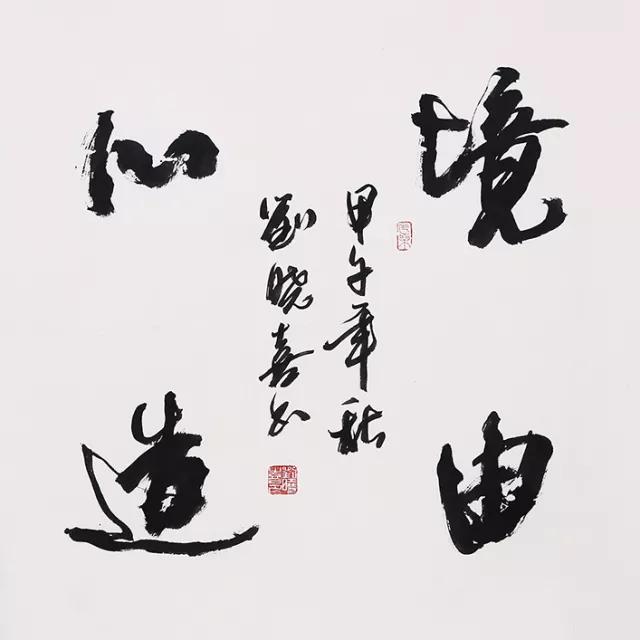 境由
心造
甲午年秋
劉曉喜书